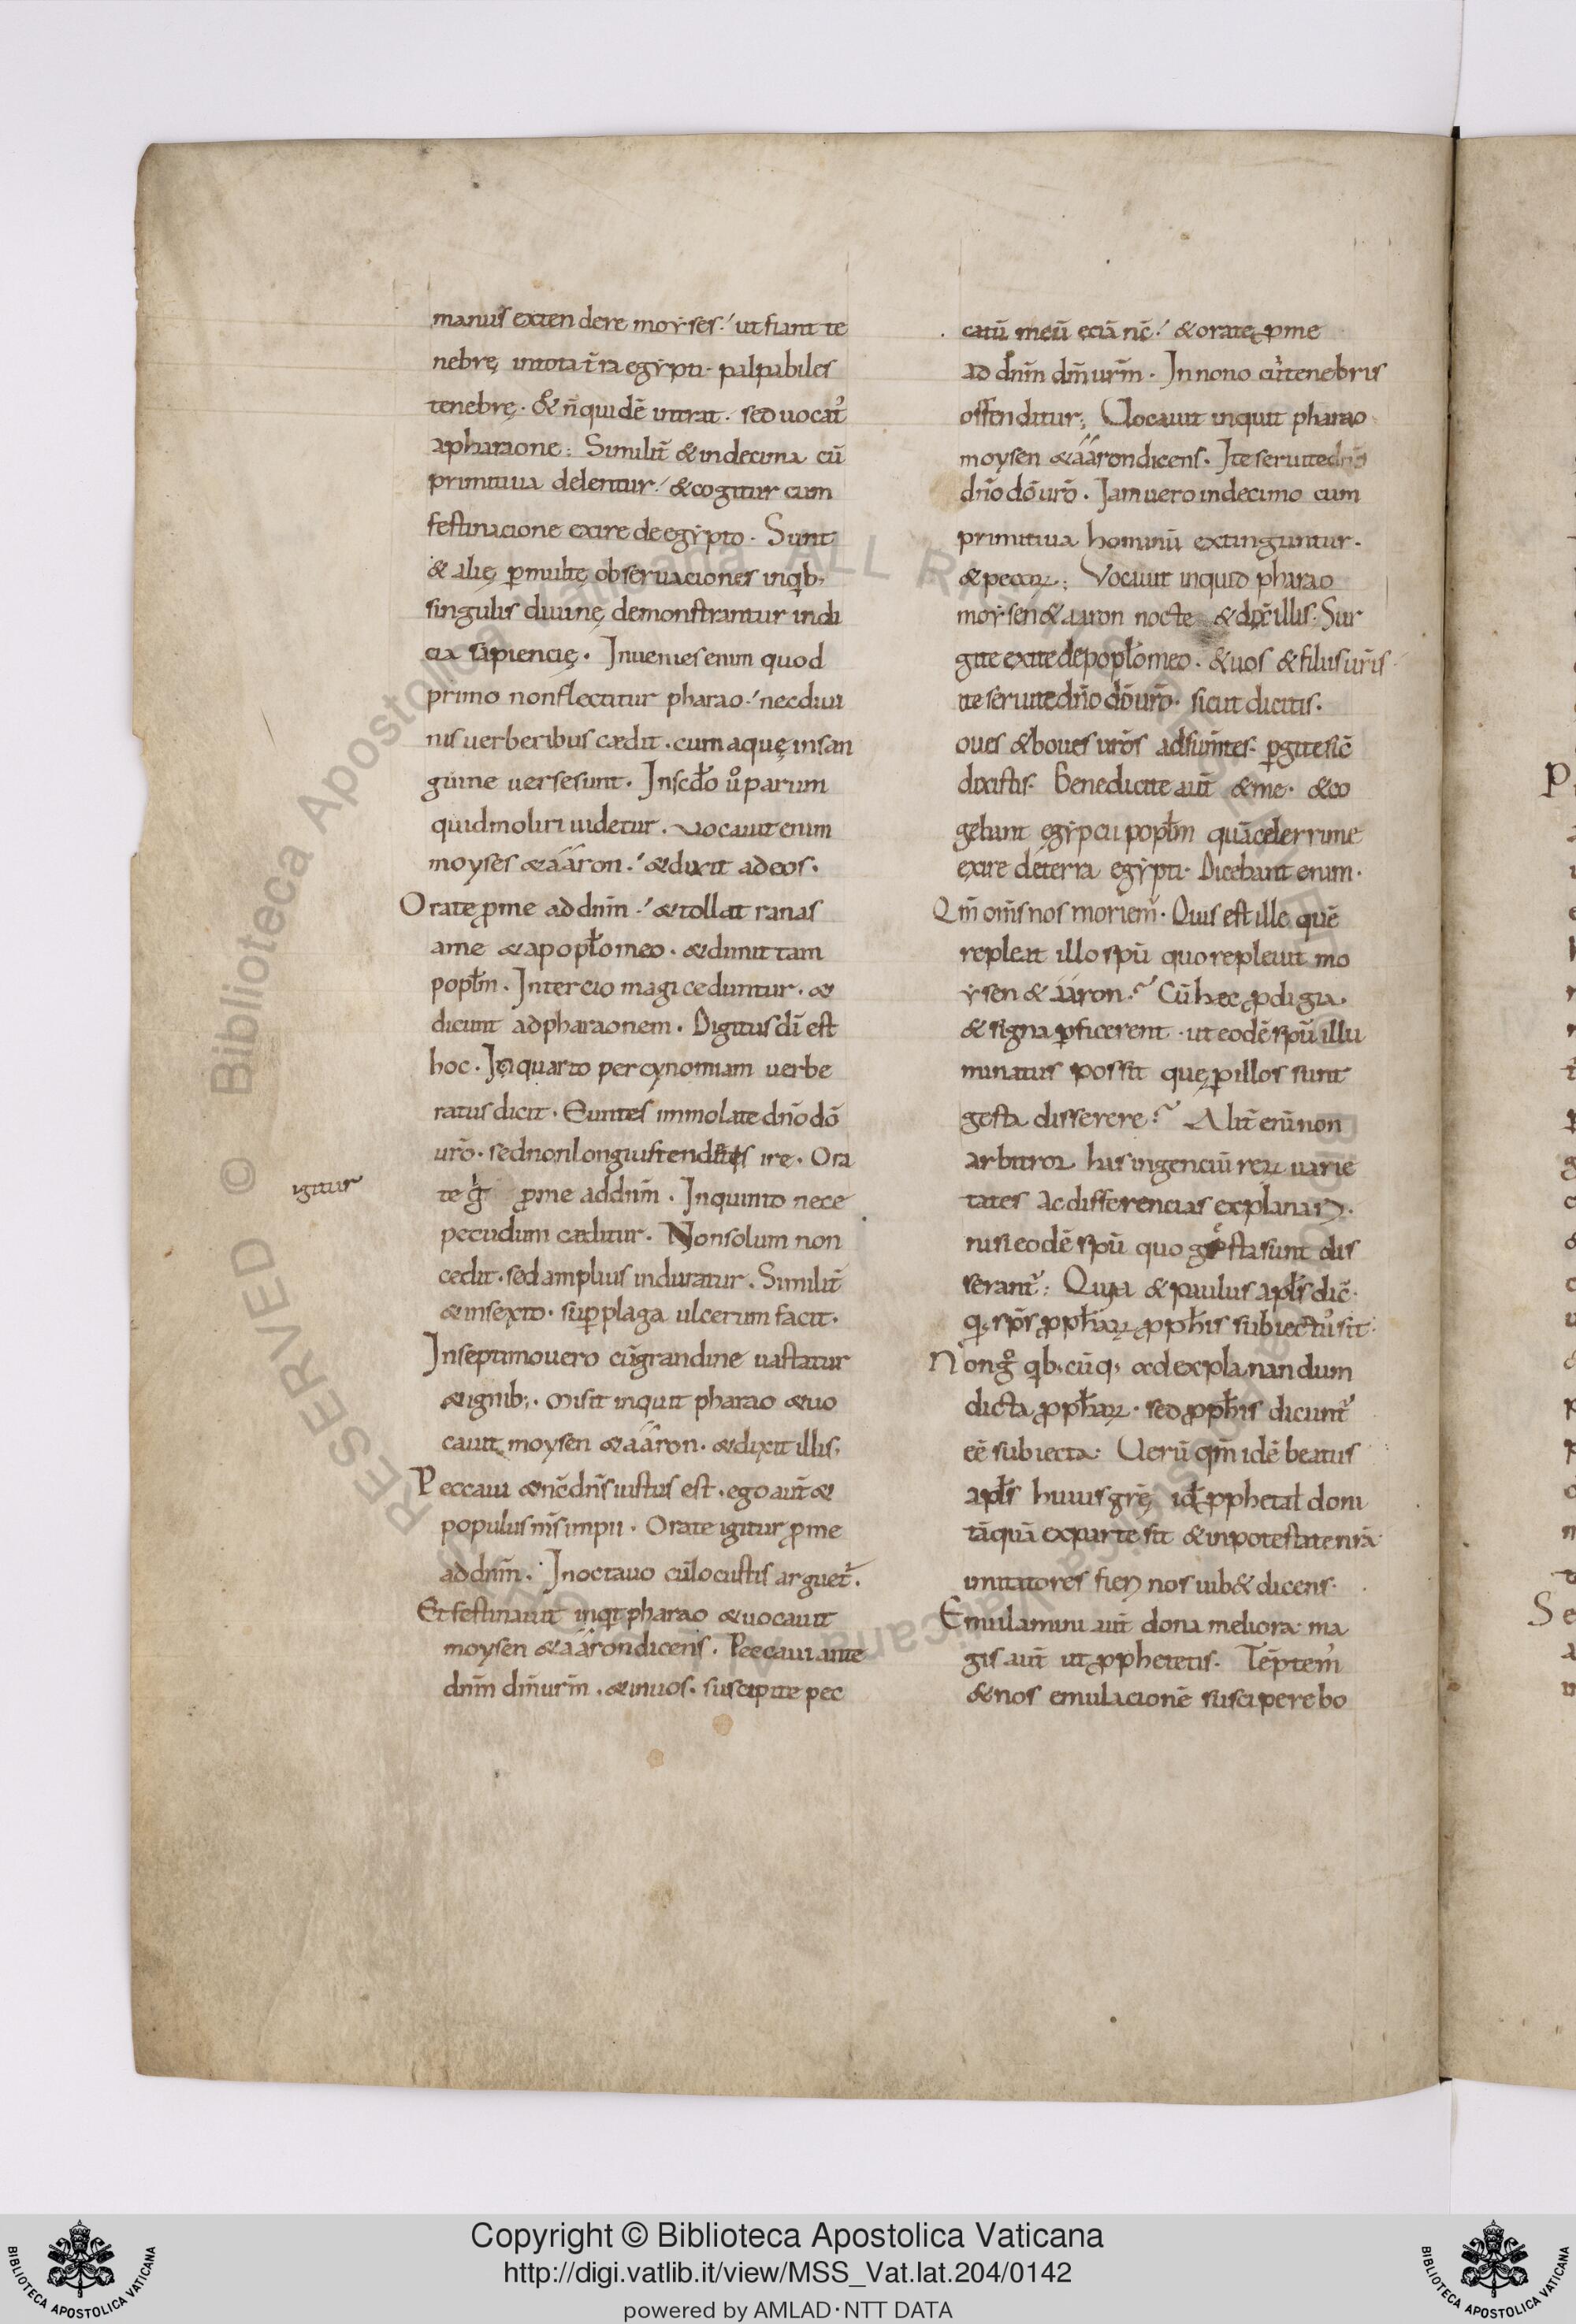 manus exten dere moẏses·' ut fiant te
nebrę intota t̄ra egẏpti· palpabiles
tenebrę· & n̄ quidē intrat· sed uocat᷒
apharaone: Similit̄ & indecima cū
primitiua delentur·' & cogitur cum
festinacione exire de egẏpto· Sunt
& alię ꝑmultę obseruaciones inqib;
singulis diuinę demonstrantur indi
cia sapiencię· Inuenies enim quod
primo nonflectitur pharao·' necdiui
nis uerberibus cædit· cum aquę insan
guine uersesunt· Inscd̄o u͛o parum
quid moliri uidetur· Uocauit enim
moyses & ááron·' & dixit ad eos·
Orate ꝓme ad dn̄m·' & tollat ranas
ame & apopl̄omeo· & dimittam
popl̄m· Intercio magi ceduntur· &
dicunt adpharaonem· Digitus dī est
hoc· Inquarto per cynomiam uerbe
ratus dicit· Euntes immolate dn̄o dō
ur̄o· sed non longius tenditis ire· Ora
igitur
te g̊ ꝓme addn̄m· Inquinto nece
pecudum cæditur· Nonsolum non
cedit· sed amplius induratur· Similit̄
& insexto· suꝑ plaga ulcerum facit·
Inseptimouero cū grandine uastatur
& ignib;· Misit inquit pharao & uo
cauit moysen & ááron· & dixit illis,
Peccaui & nc̄ dn̄s iustus est· ego aut̄ &
populus ms̄ impii· Orate igitur ꝓme
ad dn̄m· Inoctauo cū locustis arguet᷒·
Et festinauit inqͥt pharao & uocauit
moysen & ááron dicens· Peccaui ante
dn̄m dm̄ urm̄· & inuos· suscipite pec
catū meū eciā nc̄·' & orate ꝓme
ad dn̄m dm̄ urm̄· In nono cū tenebris
offenditur; Uocauit inquit pharao
moysen & ááron dicens· Ite seruite dn̄o
dn̄o dō ur̄o· Iam uero indecimo cum
primitiua hominū extinguntur·
& pecoꝝ: Vocauit inquid pharao
moẏsen & aaron nocte & dix̄ illis· Sur
gite exite de popl̄o meo· & uos & filii sur̄is
ite seruite dn̄o dō ur̄o· sicut dicitis·
oues & boues ur̄os adsum̄tes· ꝑgite sic̄
dixistis· Benedicite aut̄ & me· & co
gebant egẏpcii popl̄m quā celerrime
exire deterra egẏpti· Dicebant enim·
Qm̄ om̄s nos moriem᷒· Quis est ille quē
repleat illo sp̄u quo repleuit mo
ẏsen & ááron? Cū hec ꝓdigia
& signa ꝑficerent· ut eodē sp̄u illu
minatus possit quę ꝑ illos sunt
gesta disserere? Alit̄ eni non
arbitror has ingenciū reꝝ uarie
tates ac differencias explanari·
nisi eodē sp̄u quo gesta sunt dis
serant᷒: Quia & paulus apl̄s dic̄·
q; sp̄s ꝓph̄aꝝ ꝓph̄is subiectus sit:
Non g̊ qib;cūq; ad explanandum
dicta ꝓph̄aꝝ· sed ꝓph̄is dicunt᷒
eē subiecta: Uerū qm̄ idē beatus
apl̄s huius grę̄ id ē ꝓphetał doni
tāquā exparte sit & inpotestate nr̄a
imitatores fieri nos iub& dicens·
Emulamini aut̄ dona meliora· ma
gis aut̄ ut ꝓphetetis· Tēptem᷒
& nos emulacionē suscipere bo
Copyright © Biblioteca Apostolica Vaticana
http://digi.vatlib.it/view/MSS_Vat.lat.204/0142
powered by AMLAD·NTT DATA